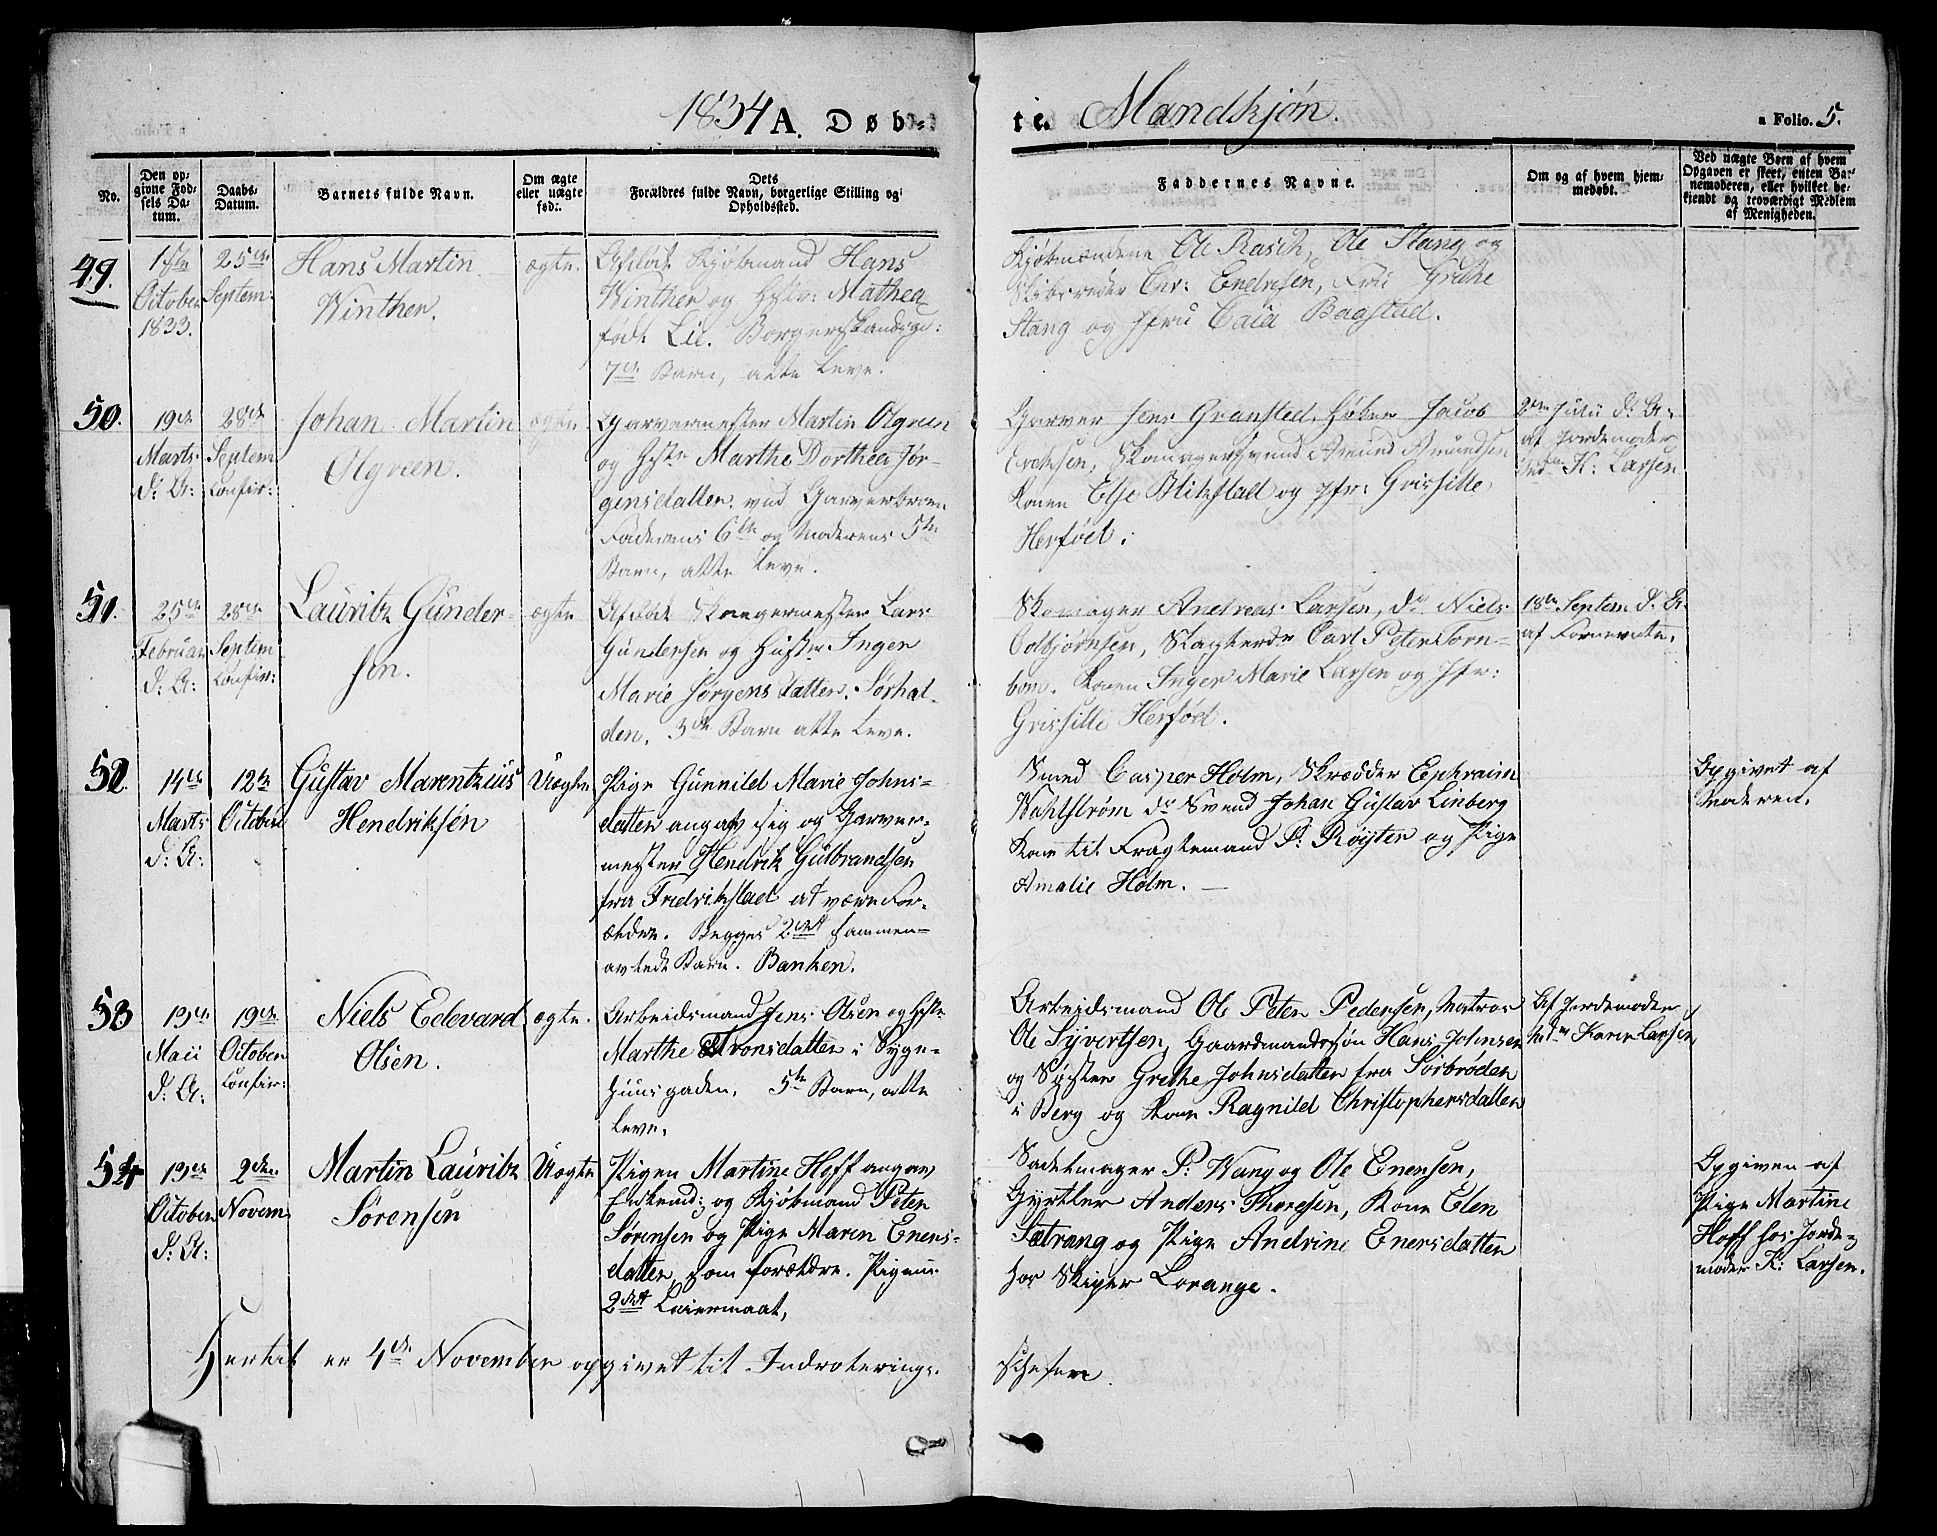 1834 A. Døb-
te. Mandkjøn.
a Folio. 5.
No.
Den op-
givne Fød-
sels Da-
tum.
Daabs-
Datum.
Barnets fulde Navn.
Om ægte
eller uægte
fød:.
Dets
Forældres fulde Navn, borgerlige Stilling og
Opholdssted.
Faddernes Navne.
Om og af hvem hjem-
medøbt.
Ved uægte Børn af hvem
Opgaven er skeet, enten Bar-
nemoderen, eller hvilket be-
kjendt og troværdigt Medlem
af Menigheden.
49.
1ste
October
1833.
25de
Septem:
Hans Martin
Winther.
ægte.
Afdøde Kjøbmand Hans
Winther og Hstr: Mathea
født Lie. Borgerskandsge:
7de Barn, alle leve.
Kjøbmændene Ole Rasch, Ole Stang og
Skibsreder Chr: Endresen, Fru Grethe
Stang og Jfru Caia Bagstad.
50.
19de
Marts
d: A:
28de
Septem
Confir:
Johan Martin
Olgreen.
ægte.
Garvermester Martin Olgreen
og Hstr Marthe Dorthea Jør-
gensdatter ved Garverbroen
Faderens 6te og Moderens 5te
Barn, alle leve.
Garver Jens Gransted, Høker Jacob
Ericksen, Skomagersvend Amund Amundsen
Konen Else Blikstad og Jfr: Grissille
Herføel.
2den Julii d: A:
af Jordemoder
Md: K: Larsen
51.
25de
Februar
d: A:
28de
Septem
Confir:
Lauritz Gunder-
sen.
ægte
Afdøde Skomagermester Lars
Gundersen og Hustr Inger
Marie Jørgensdatter. Sørhal-
den. 3de Barn alle leve.
Skomager Andreas Larsen, do Niels
Odbjørnsen, Slagter Carl Peter Torn-
bom. Konen Inger Marie Larsen og Jfr:
Grissille Herføel.
18de Septem d: A:
af Forrevete.
52.
14de
Marts
d: A:
12te
October
Gustav Marentzius
Hendriksen
Uægte
Pige Gunnild Marie Johns-
datter angav sig og Garver-
mester Hendrik Gulbrandsen
fra Fredrikstad at være For-
ældre. Begges 2det sammen-
avlede Barn. Banken.
Smed Casper Holm, Skrædder Ephraim
Wahlstrøm do Svend Johan Gustav Linberg
Kone til Fragtemand P: Røyter og Pige
Amalie Holm.
Opgivet af
Moderen.
53
19de
Maii
d: A:
19de
October
Confir:
Niels Edevard
Olsen.
ægte.
Arbeidsmand Jens Olsen og Hstr
Marthe Tronsdatter i Syge-
huusgaden. 5te Barn, alle
leve.
Arbeidsmand Ole Peter Pedersen, Matros
Ole Syvertsen, Gaardmandssøn Hans Johnsen
og Søster Grethe Johnsdatter fra Sørbrøden
i Berg og Kone Ragnild Christophersdatter
Af Jordemoder
Mdm Karen Larsen
54
19de
October
d: A:
2den
Novem
Martin Lauritz
Sørensen
Uægte
Pigen Martine Hoff angav
Kjøbmand Peter
Sørensen og Pige Maren Eners-
datter som Forældre. Pigens
2det Leiermaal,
Sadelmager P: Wang og Ole Enersen,
Gyrtler Anders Thoresen, Kone Elen
Sætrang og Pige Andrine Enersdatter
hos Skipper Lorange.
Opgiven af
Pige Martine
Hoff hos Jorde-
moder K: Larsen.
Hertil er 4de November opgivet til Indroterings-
Chefen.